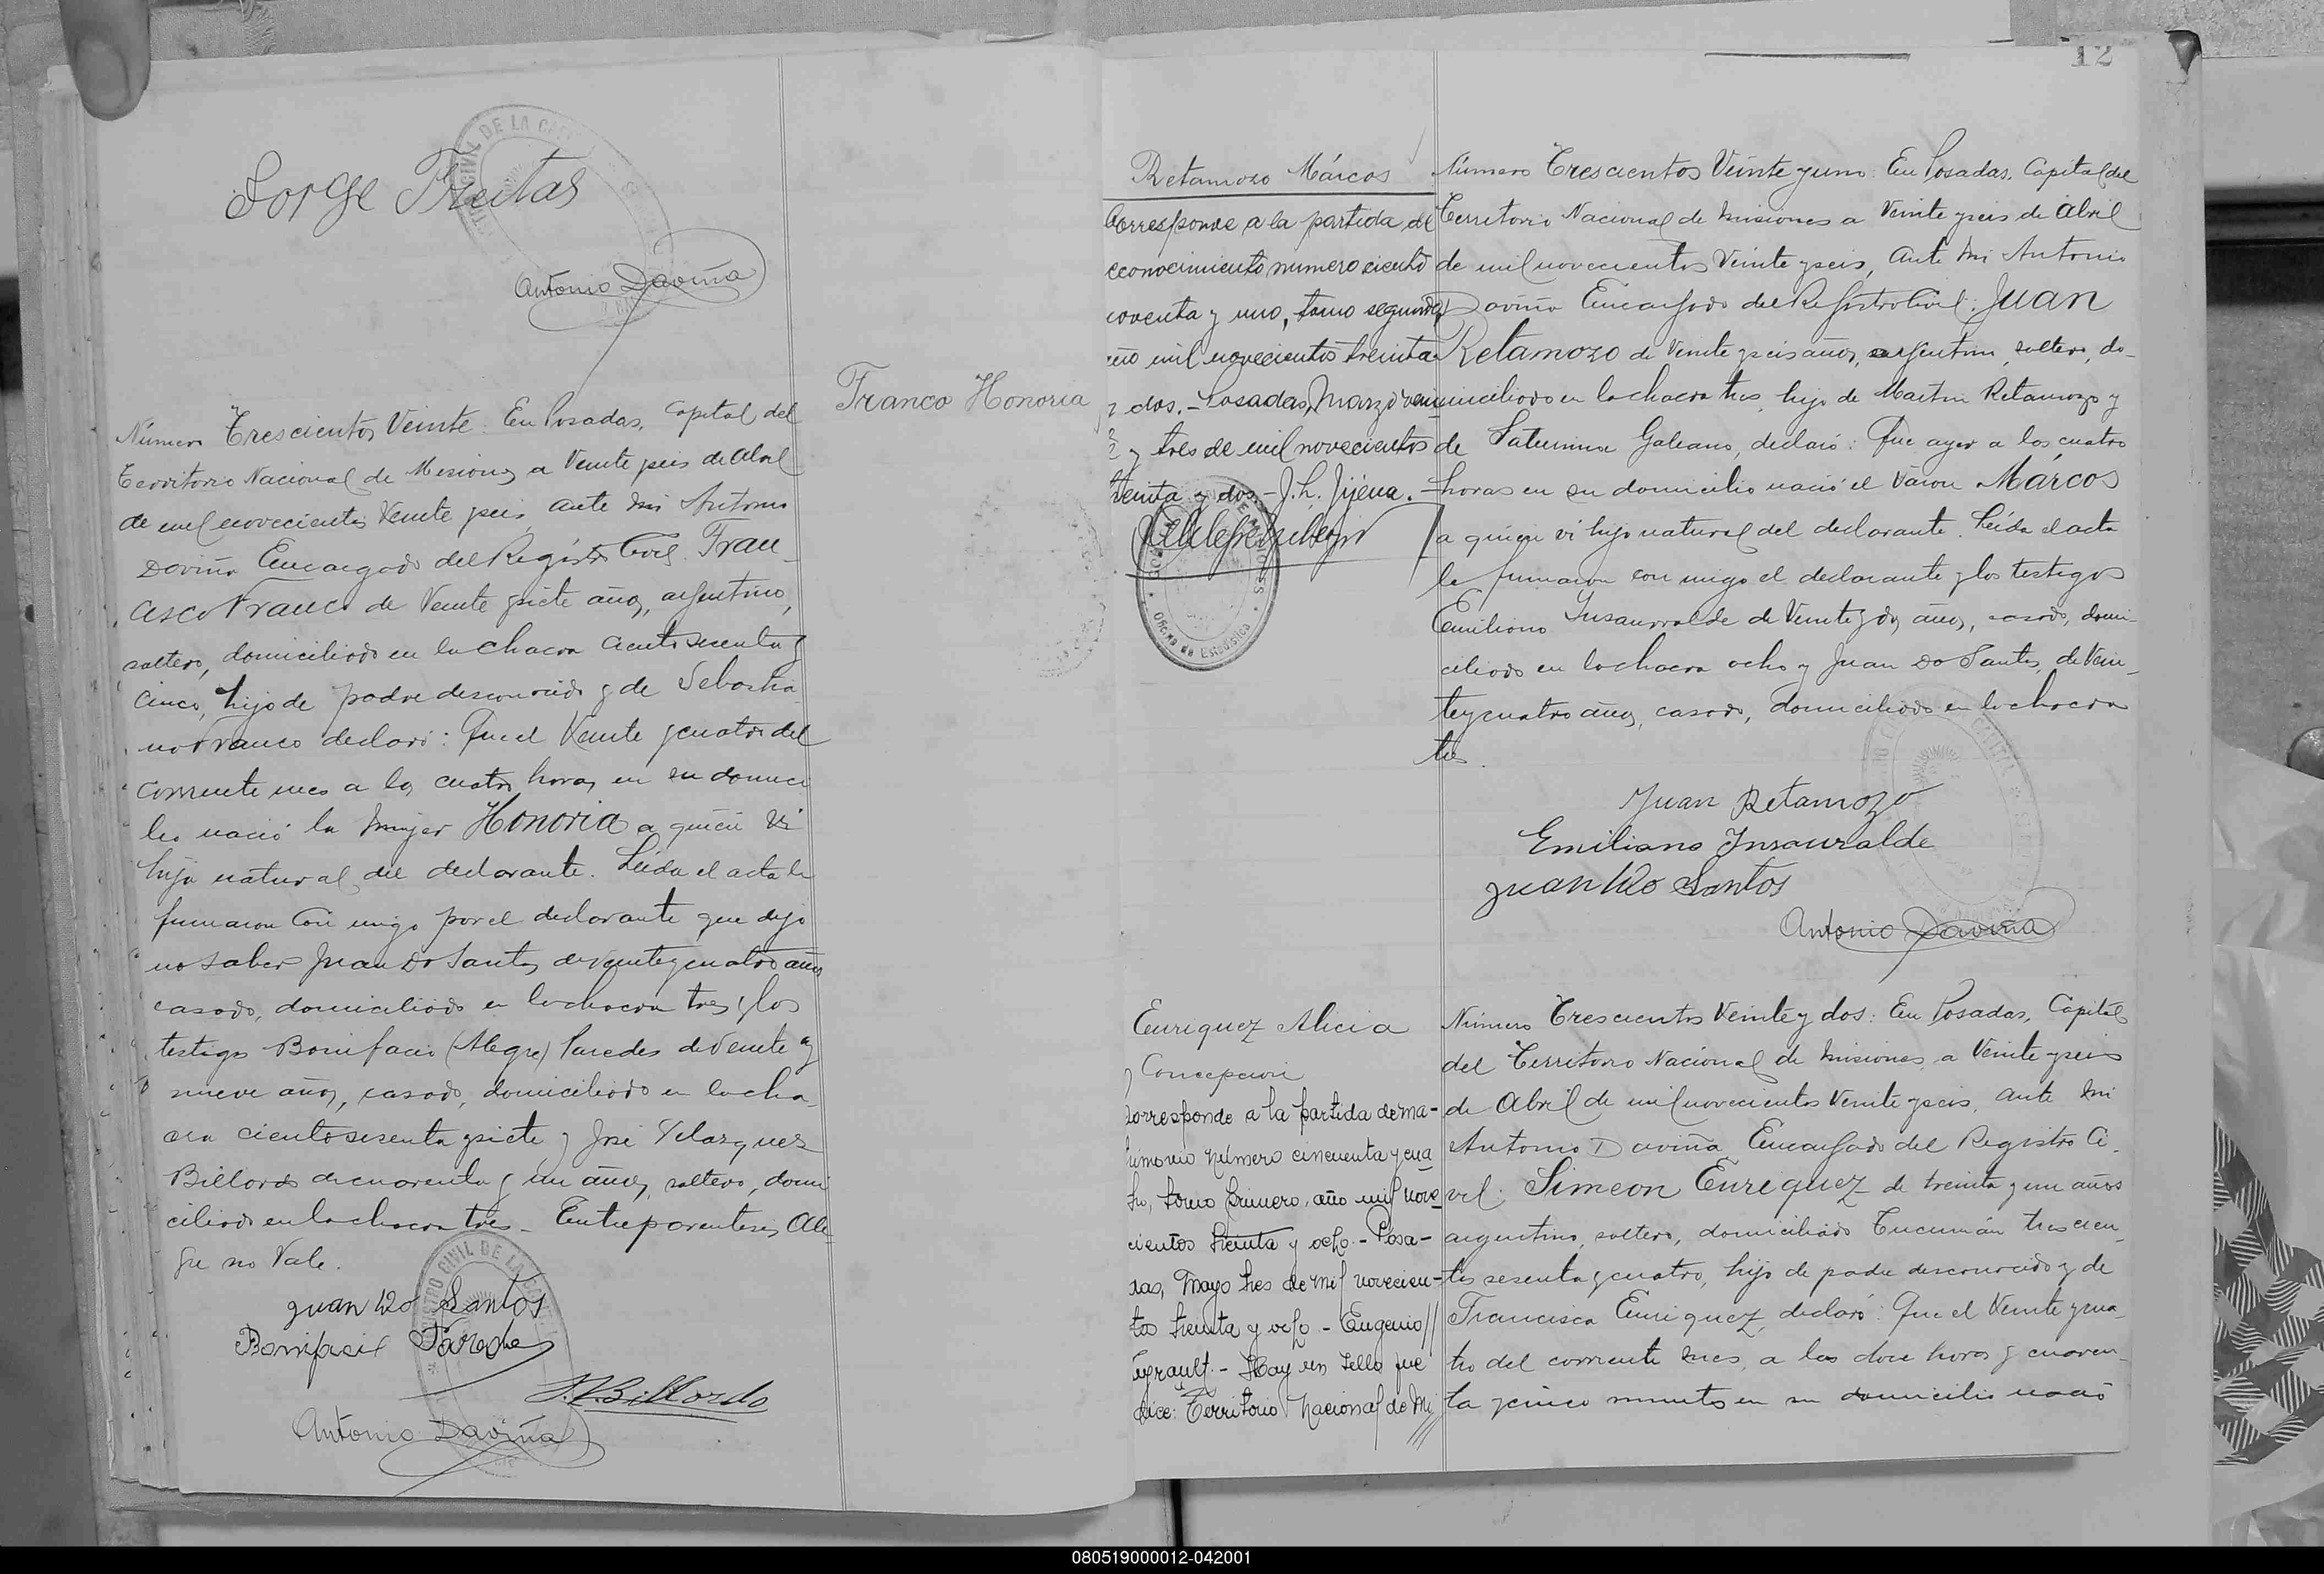 Jorge Freitas
Antonio Daviña
Franco Honoria
Número Trescientos Veinte: En Posadas, Capital del
Territorio Nacional de Misiones a Veinte y seis de Abril
de mil novecientos Veinte y seis, ante mi Antonio
Daviña Encargado del Registro Civil. Fran-
cisco Franco de Veinte y siete años, argentino,
soltero, domiciliado en la chacra ciento sesenta y
cinco, hijo de padre desconocido y de Sebastia
na Franco declaró: Que el Veinte y cuatro del
corriente mes a las cuatro horas en su domici
lio nació la mujer Honoria a quién vi
hija natural del declarante. Leída el acta la
firmaron con migo por el declarante que dijo
no saber Juan Do Santos de veinte y cuatro años
casado, domiciliado en la chacra tres y los
testigos Bonifacio (Alegre) Paredes de Veinte y
nueve años, casado, domiciliado en la cha-
cra ciento sesenta y siete y José Velazquez
Billordo de cuarenta y un años, soltero, domi
ciliado en la chacra tres - Entre parentesis, Ale
gre no Vale.
Juan Do Santos
Bonifacio Paredes
J. V. Billordo
Antonio Daviña
12
Retamozo Márcos
Corresponde a la partida de
econocimiento numero ciento
noventa y uno, tomo segundo,
año mil novecientos treinta
y dos. - Posadas, Marzo vein
te y tres de mil novecientos
treinta y dos - J. h. Jijena. -
Oficina de Estadística
Número Trescientos Veinte y uno: En Posadas, Capital del
Territorio Nacional de Misiones a Veinte y seis de Abril
de mil novecientos Veinte y seis, Ante mi Antonio
Daviña Encargado del Registro Civil: Juan
Retamozo de Veinte y seis años, argentino, soltero, do-
miciliado en la chacra tres, hijo de Martin Retamozo y
de Saturnina Galeano, declaró: Que ayer a las cuatro
horas en su domicilio nació el Váron Márcos
a quién vi hijo natural del declarante. Leída el acta
la firmaron con migo el declarante y los testigos
Emiliano Insaurralde de Veinte y dos años, casado, domi-
ciliado en la chacra ocho y Juan Do Santos, de Vein-
te y cuatro años, casado, domiciliado en la chacra
tres.
Juan Retamozo
Emiliano Insauralde
Juan Do Santos
Antonio Daviña
Enriquez Alicia
y Concepcion
corresponde a la partida de ma-
trimonio número cincuenta y cua
tro, tomo primero, año mil nove
cientos treinta y ocho. - Posa-
das, Mayo tres de mil novecien-
tos treinta y ocho - Eugenio //
- Hay un sello que
dice: Territorio Nacional de Mi
Número Trescientos Veinte y dos: En Posadas, Capital
del Territorio Nacional de Misiones, a Veinte y seis
de Abril de mil novecientos Veinte y seis, ante mi
Antonio Daviña Encargado del Registro Ci-
vil: Simeon Enriquez de treinta y un años
argentino, soltero, domiciliado Tucumán trescien-
tos sesenta y cuatro, hijo de padre desconocido y de
Francisca Enriquez, declaró: Que el Veinte y cua-
tro del corriente mes, a las doce horas y cuaren-
ta y cinco minutos en su domicilio nació
080519000012-042001